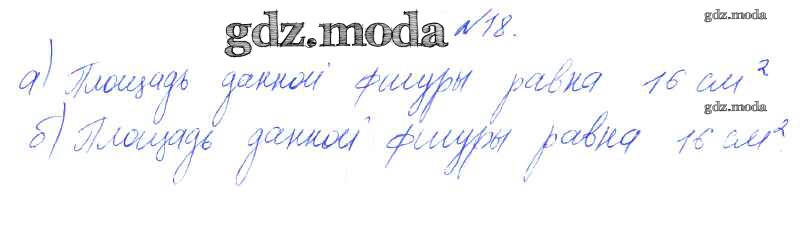 gdz.moda №18.
gdz.moda
а) Площадь данной фигуры равна 16 см²
gdz.moda
б) Площадь данной фигуры равна 16 см²